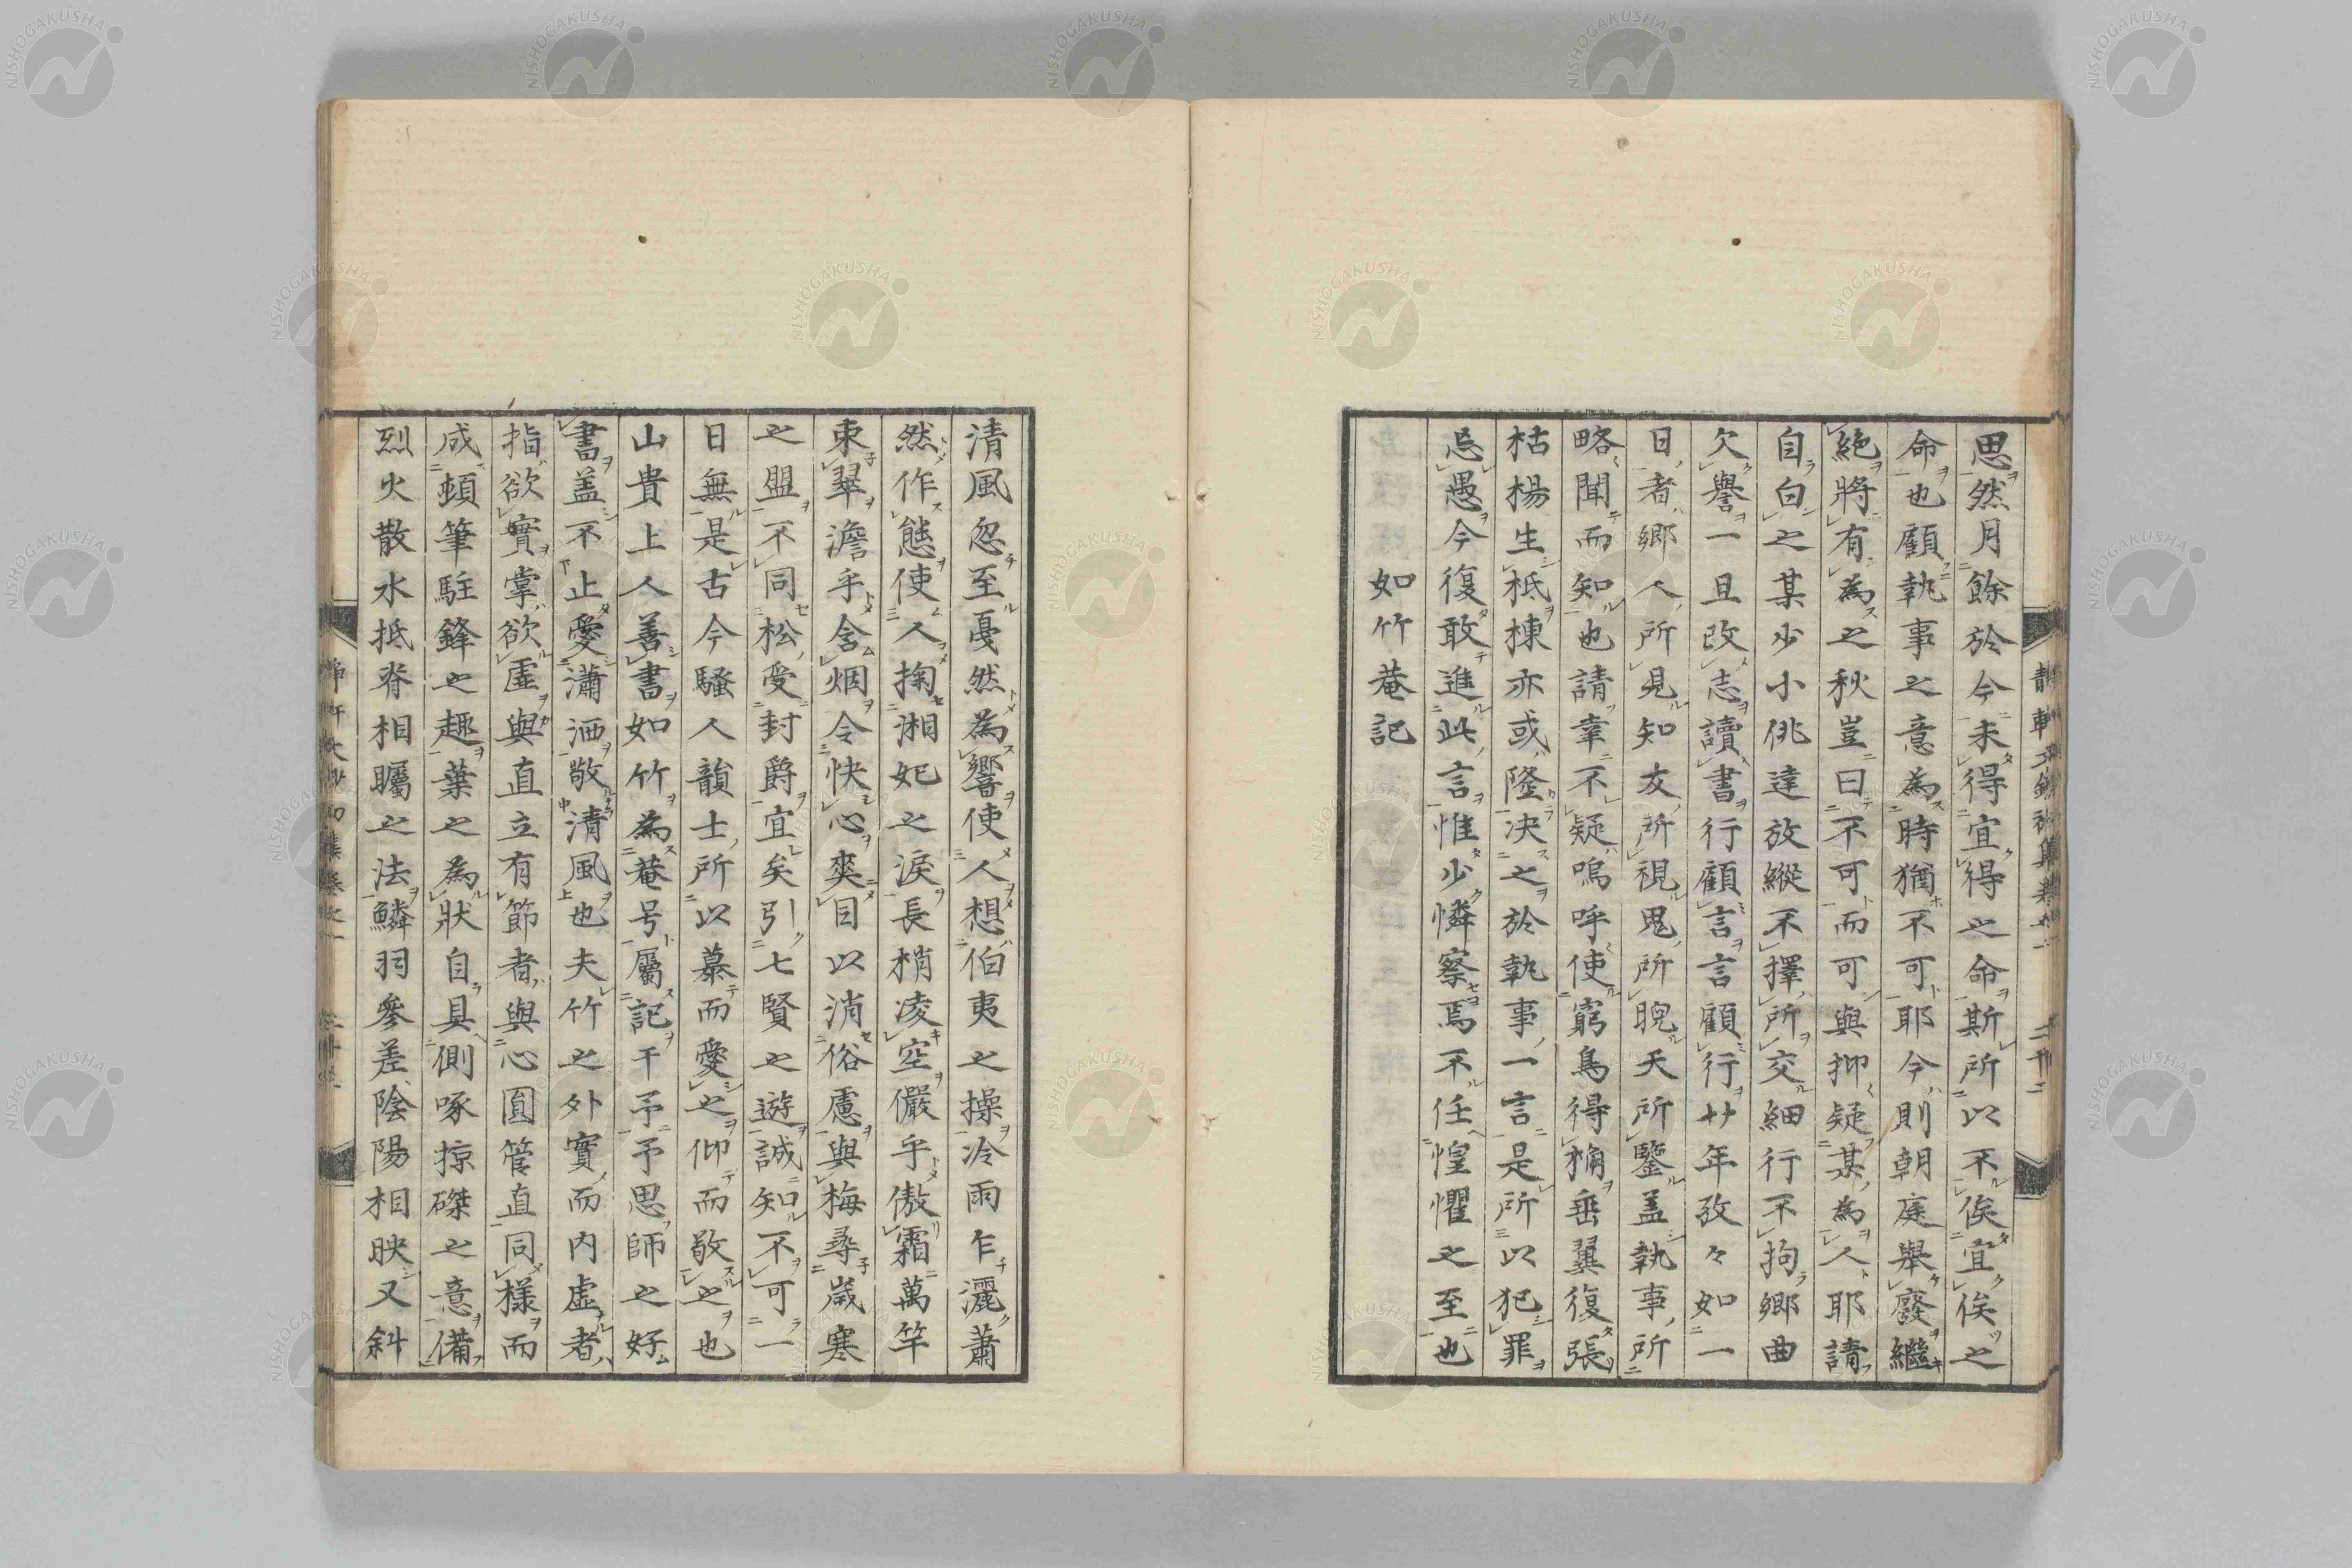 思然月餘於今未得宜得之命斯所以不俟宜俟之
命也顧執事之意為時猶不可耶今則朝庭舉廢繼
絶將有為之秋豈曰不可而可與抑疑某為人耶請
自白之某少小佻達放縱不擇所交細行不拘鄉曲
欠譽一旦改志讀書行顧言言顧行廿年孜々如一
日者鄉人所見知友所視鬼所睨天所鑒盖執事所
略聞而知也請韋不疑嗚呼使窮鳥得桷垂翼復張
枯楊生柢棟亦或隆决之於執事一言是所以犯罪
忌愚今復敢進此言惟少憐察焉不任惶懼之至也
如竹菴記
清風忽至戞然為響使人想伯夷之操冷雨乍灑蕭
然作態使人掬湘妃之淚長梢凌空儼乎傲霜萬竿
束翠澹乎含烟令快心爽目以消俗慮與梅尋歲寒
之盟不同松受封爵宜矣引七賢之遊誠知不可一
日無是古今騷人韻士所以慕而愛之仰而敬之也
山貴上人善書如竹為菴号屬記于予予思師之好
書盖不止愛瀟洒敬清風也夫竹之外實而内虛者
指欲實掌欲虛與直立有節者與心圓管直同樣而
咸頓筆駐鋒之趣葉之為狀自具側啄掠磔之意備
烈火散水抵脊相矚之法鱗羽參差陰陽相映又斜
NISHOGAKUSHA